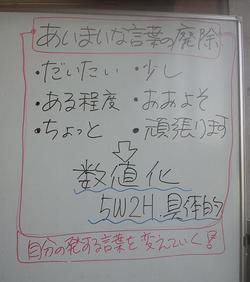 あいまいな言葉の廃除
・だいたい ・少し
・ある程度 ・おおよそ
・ちょっと ・頑張ります
数値化
5W2H.具体的
自分の発する言葉を変えていく!